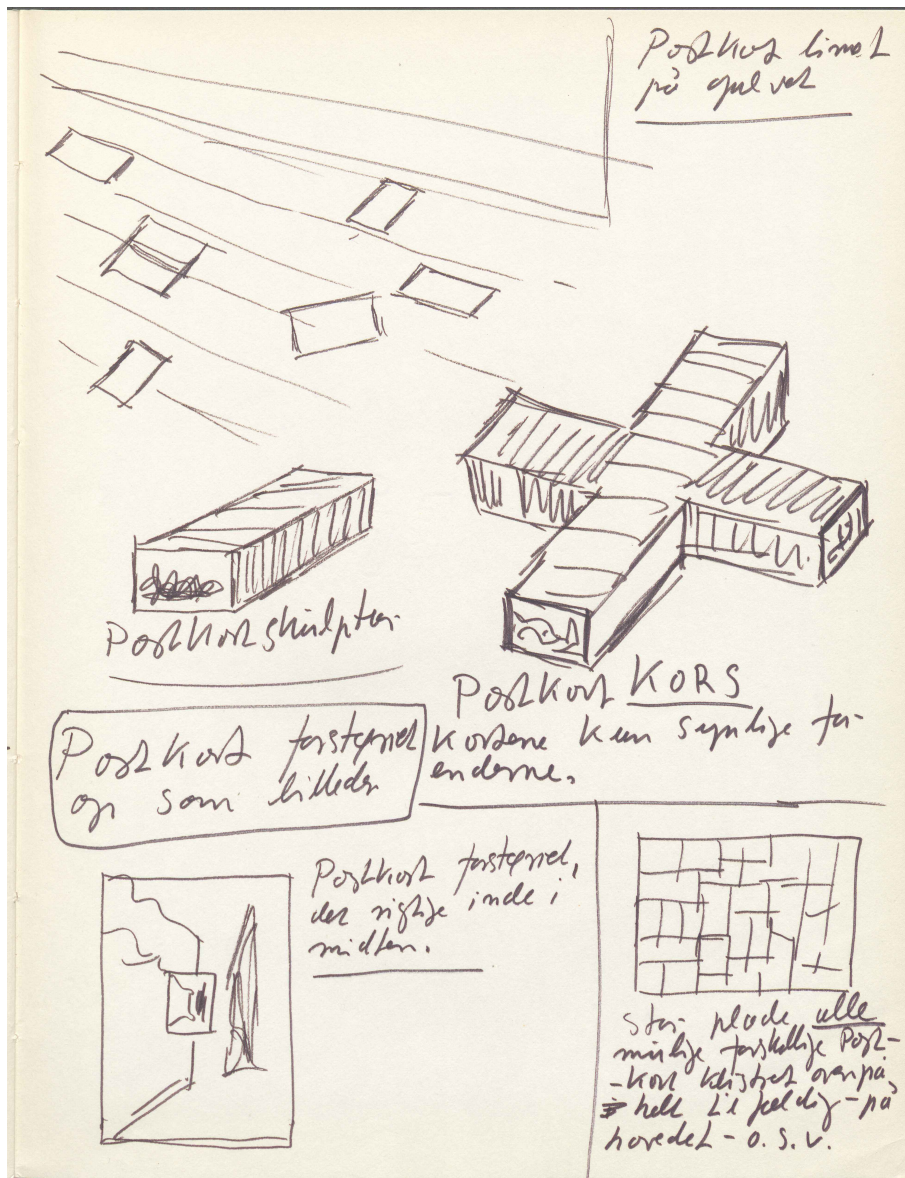 Postkort limet
på gulvet
Postkortskulptur
Postkort KORS
kortene kun synlige for
enderne.
Postkort forstørret
op som billeder
Postkort forstørret,
det rigtige inde i
midten.
stor plade alle
mulige forskellige Post-
-kort klistret ovenpå
helt tilfældig - på
hovedet - o.s.v.